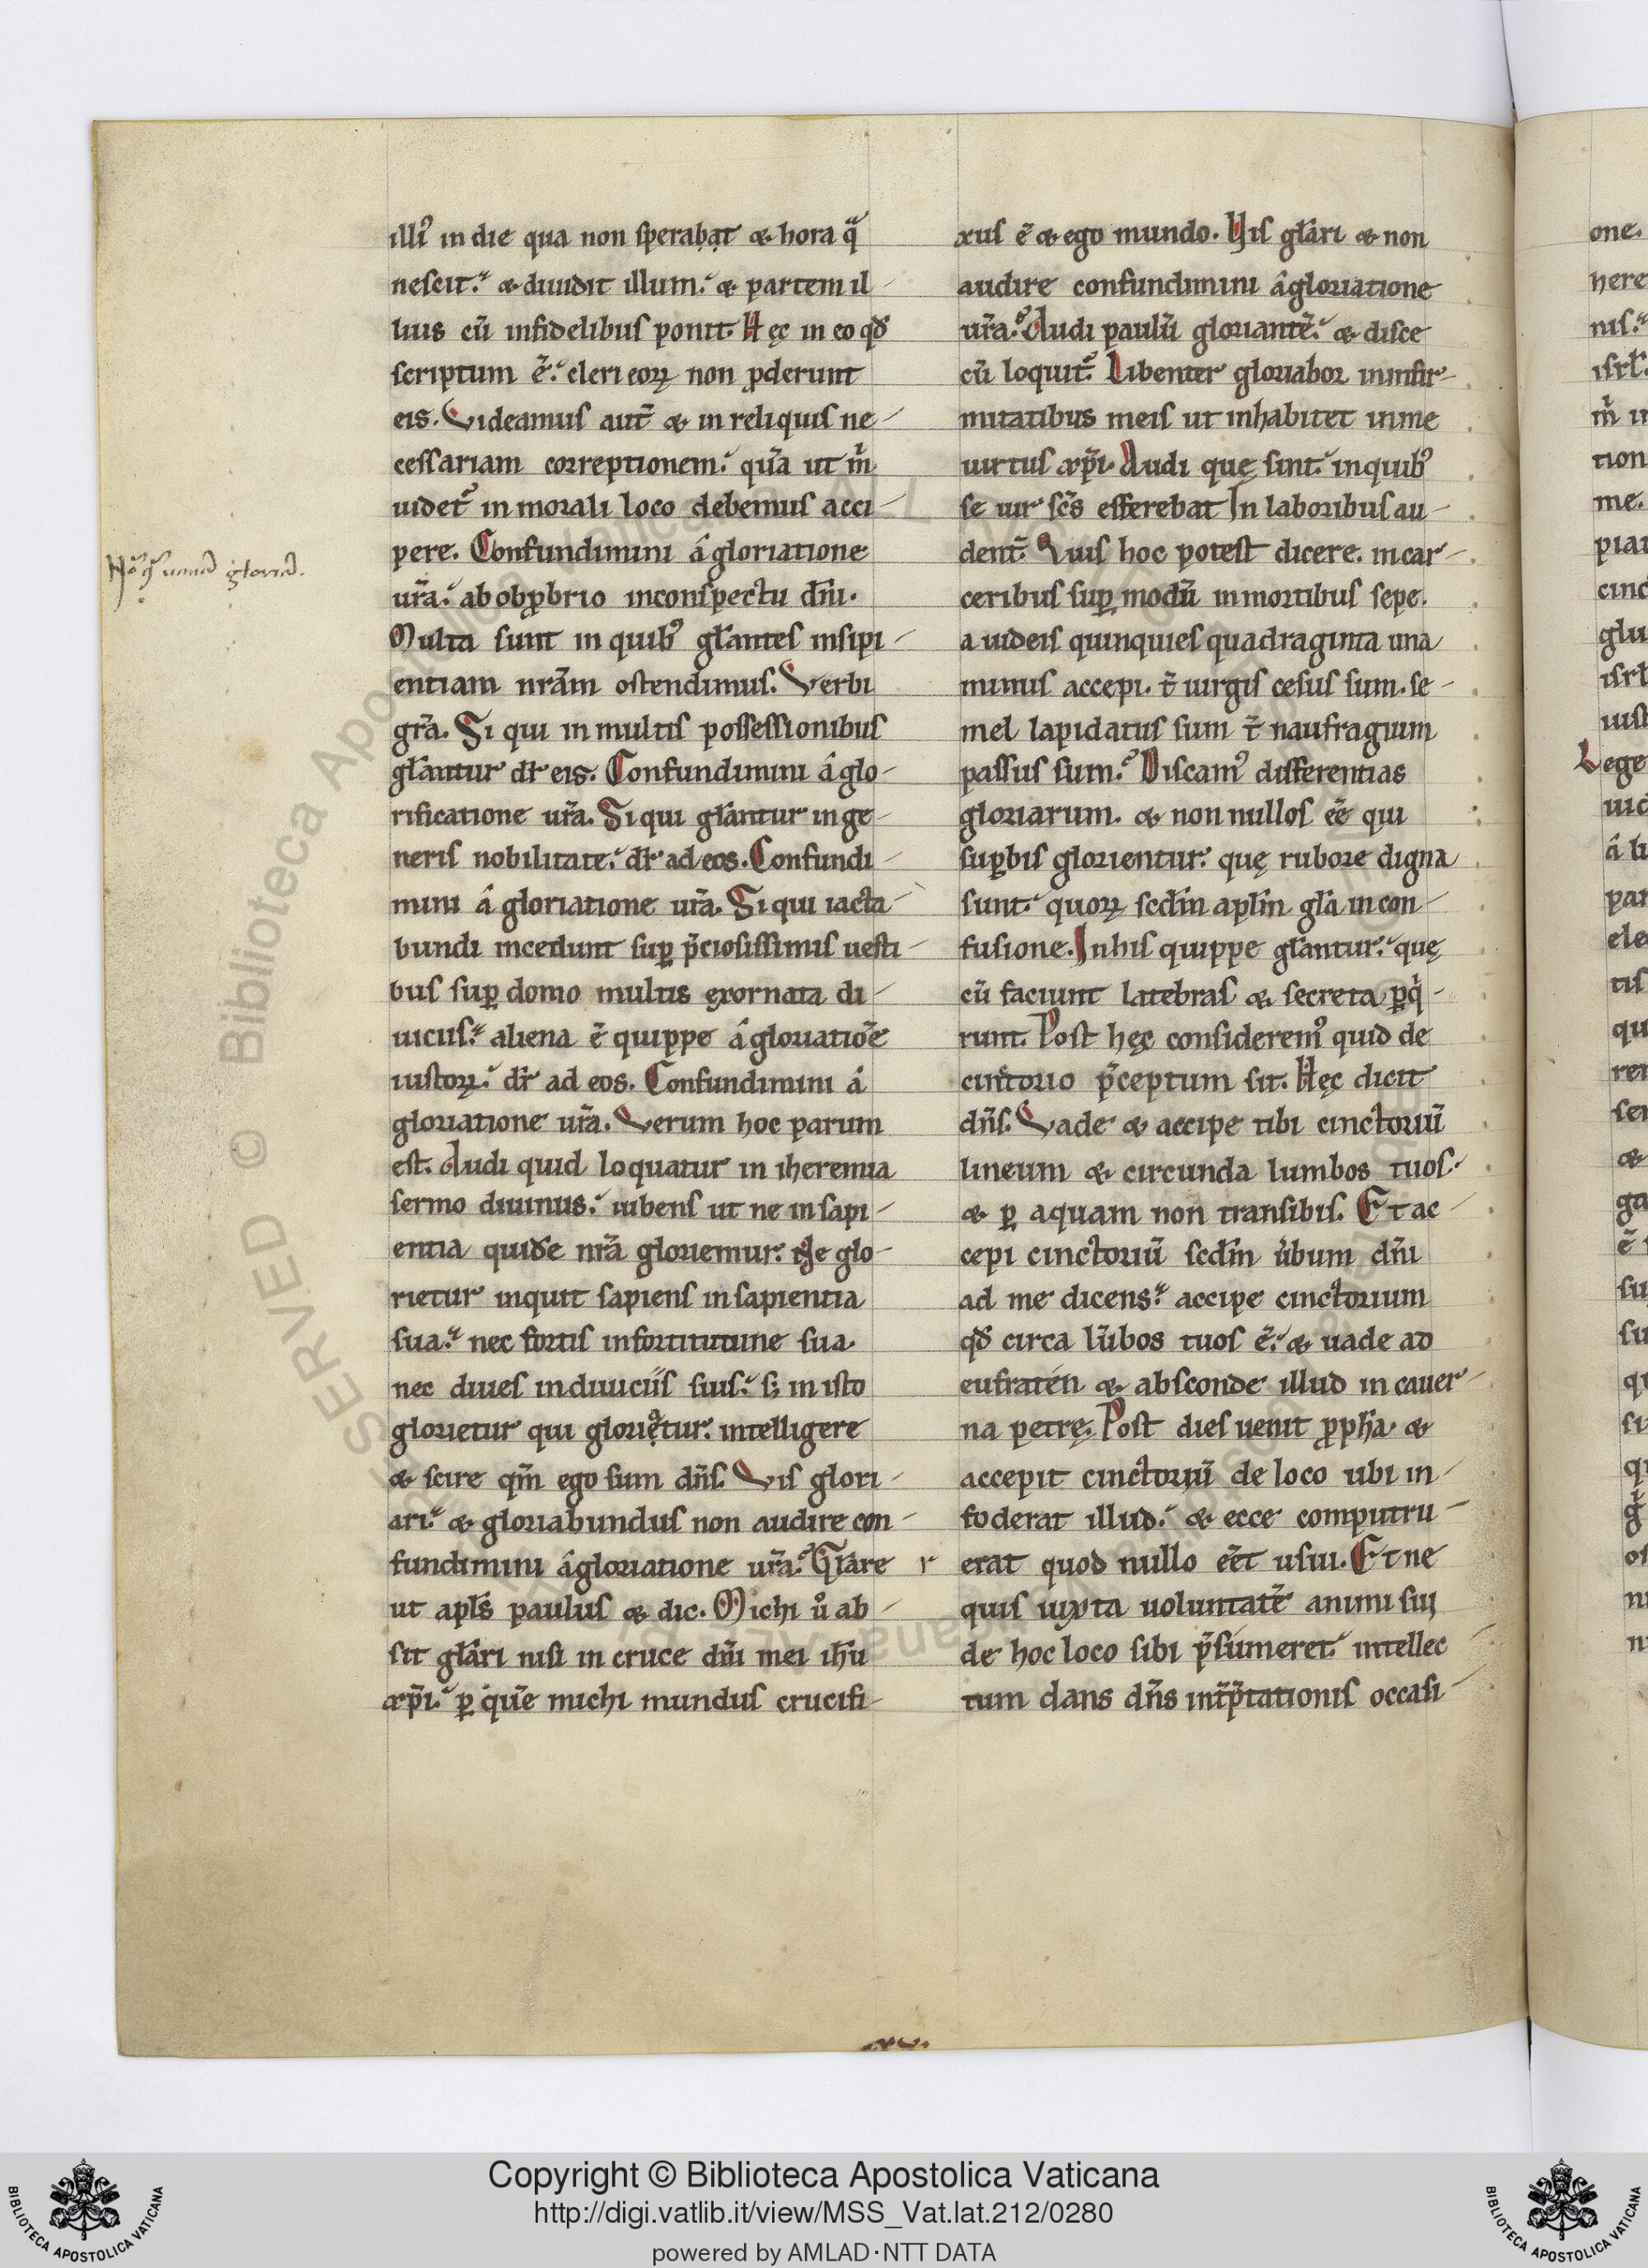 illiꝰ in die qua non sperabat & hora q̈
nescit. & diuidit illum. & partem il-
lius cū infidelibus ponit. Hęc in eo qđ
scriptum ē. cleri eoꝝ non ꝓderunt
eis. Videamus aut̄ & in reliquis ne-
cessariam correptionem. qūa ut m̄
uidet᷑ in morali loco debemus acci-
pere. Confundimini á gloriatione
ur̄a. ab obꝓbrio in conspectu dn̄i.
Multa sunt in quibꝰ gl̄antes insipi-
entiam nr̄am ostendimus. Verbi
gr̄a. Si qui in multis possessionibus
gl̄antur dr̄ eis. Confundimini á glo-
rificatione ur̄a. Si qui gl̄antur in ge-
neris nobilitate. dr̄ ad eos. Confundi-
mini á gloriatione ur̄a. Si qui iacta-
bundi incedunt suꝑ p̄ciosissimis uesti-
bus suꝑ domo multis exornata di-
uiciis. aliena ē quippe á gloriatiōe
iustoꝝ. dr̄ ad eos. Confundimini á
gloriatione ur̄a. Verum hoc parum
est. Audi quid loquatur in iheremia
sermo diuinus. iubens ut ne in sapi-
entia quidē nr̄a gloriemur. Ne glo-
rietur inquit sapiens in sapientia
sua. nec fortis in fortitutune sua.
nec diues in diuiciis suis. s; in isto
glorietur qui gloriatur. intelligere
& scire qm̄ ego sum dn̄s. Vis glori-
ari. & gloriabundus non audire con-
fundimini á gloriatione ur̄a. Gl̄are
ut apl̄s paulus & dic. Michi ů ab-
sit gl̄ari nisi in cruce dn̄i mei ih̄u
xp̄i. ꝑ quē michi mundus crucifi-
xus ē & ego mundo. His gl̄ari & non
audire confundimini á gloriatione
ur̄a. Audi paulū gloriantē. & disce
cū loquit᷑. Libenter gloriabor in infir-
mitatibus meis ut inhabitet in me
uirtus xp̄i. Audi quę sint. in quibꝰ
se uir sc̄s efferebat In laboribus au-
dent̄. Quis hoc potest dicere. in car-
ceribus suꝑ modū in mortibus sepe.
a iudeis quinquies quadraginta una
minus accepi. t̄ uirgis cesus sum. se-
mel lapidatus sum t̄ naufragium
passus sum. Discamꝰ differentias
gloriarum. & non nullos eē qui
suꝑbis glorientur. quę rubore digna
sunt. quoꝝ scd̄m apl̄m gl̄a in con-
fusione. In his quippe gl̄antur. quę
cū faciunt latebras & secreta ꝑq̇-
runt. Post hęc consideremꝰ quid de
cintorio p̄ceptum sit. Hęc dicit
dn̄s. Vade & accipe tibi cinctoriū
lineum & circunda lumbos tuos.
& ꝑ aquam non transibis. Et ac-
cepi cinctoriū scd̄m u̇bum dn̄i
ad me dicens. accipe cinctorium
qđ circa lūbos tuos ē. & uade ad
eufraten & absconde illud in cauer-
na petrę. Post dies uenit ꝓph̄a &
accepit cinctoriū de loco ubi in-
foderat illud. & ecce computru-
erat quod nullo eēt usui. Et ne
quis iuxta uoluntatē animi sui
de hoc loco sibi p̄sumeret. intellec
tum dans dn̄s int̄p̄tationis occasi-
one.
nere
nis.
isrl̄.
m̄ i
tion
me.
piar
cinc
glu
isrl̄
iust
Lege
uid
á li
par
ele
tis
qu
rer
ser
&
ga
ē
su
su
q
si
q
g
os
n
n
© Biblioteca Apostolica Vaticana
Copyright © Biblioteca Apostolica Vaticana
http://digi.vatlib.it/view/MSS_Vat.lat.212/0280
powered by AMLAD·NTT DATA
BIBLIOTECA APOSTOLICA VATICANA
BIBLIOTECA APOSTOLICA VATICANA